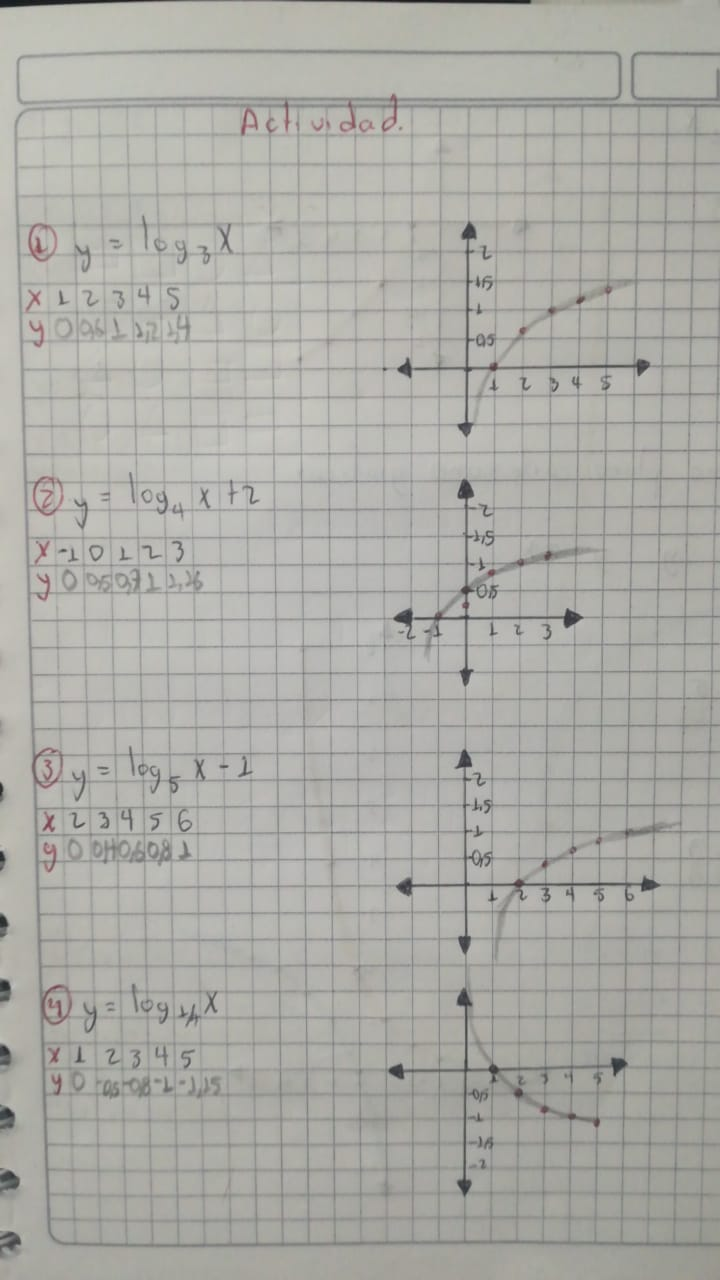 Actividad.
① y = log₃ x
x 1 2 3 4 5
y 0 0,6 1 1,2 1,4
2
1,5
1
0,5
1 2 3 4 5
② y = log₄ x + 2
x -1 0 1 2 3
y 0 0,5 0,7 1 1,16
2
1,5
1
0,5
-2 -1 1 2 3
③ y = log₅ x - 1
x 2 3 4 5 6
y 0 0,4 0,6 0,8 1
2
1,5
1
0,5
1 2 3 4 5 6
④ y = log 1/4 x
x 1 2 3 4 5
y 0 -0,5 -0,8 -1 -1,15
1 2 3 4 5
-0,5
-1
-1,5
-2